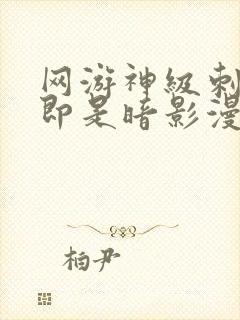 网游神级刺
即是暗影漫
柏尹